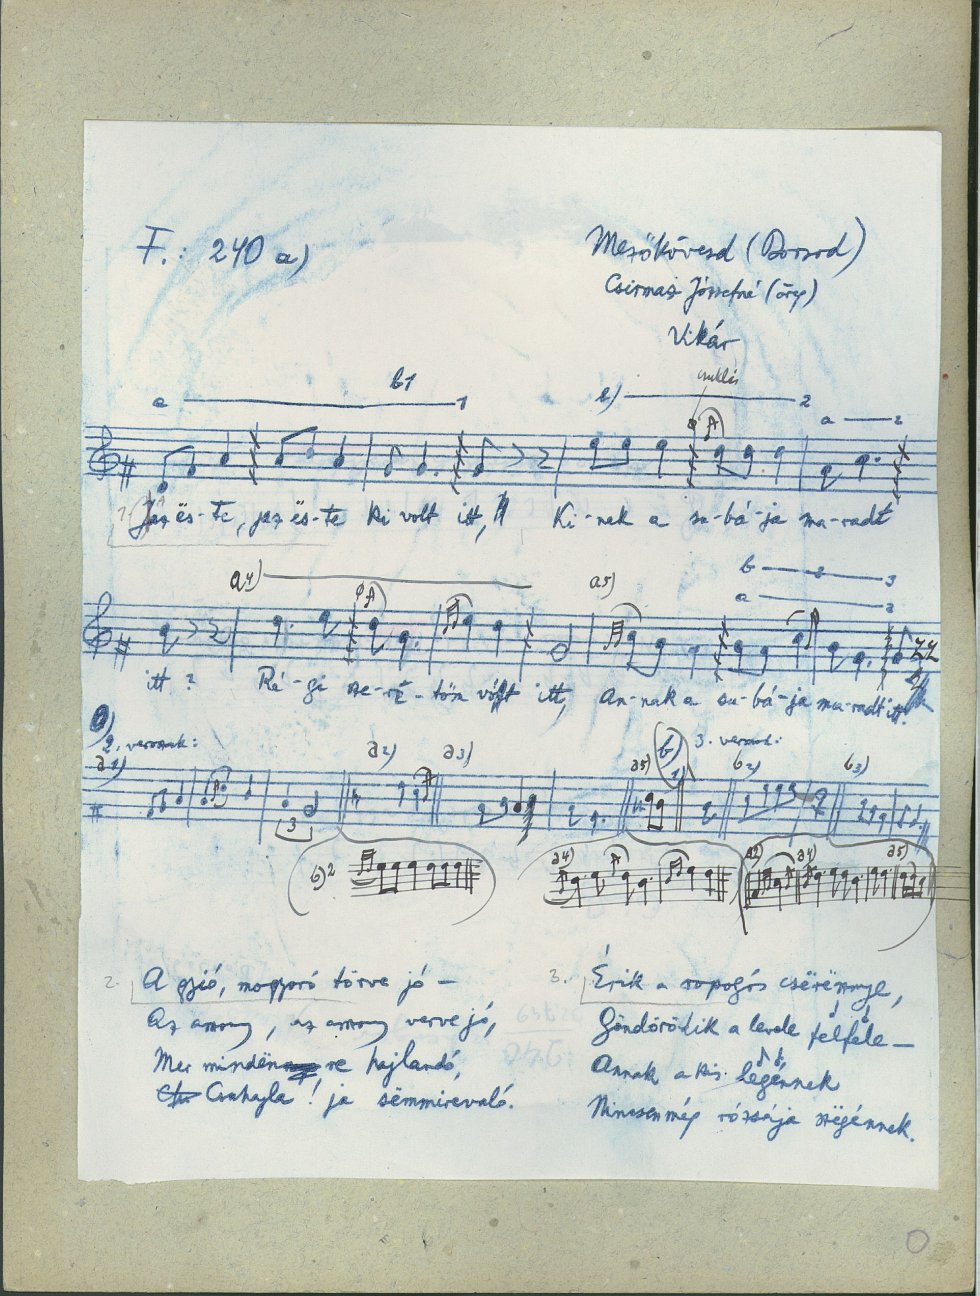 F.: 240 a)
Mezőkövesd (Borsod)
Csirmaz Józsefné (öreg)
Vikár
csuklás
a 1
b1
b) 2
a 2
1. Jaz ës-te, jaz ës-te ki volt itt, Ki-nek a su-bá-ja ma-radt
a4)
a5)
b 2 3
a 2
itt? Ré-gi sze-re-tőm vólt itt, An-nak a su-bá-ja ma-radt itt.
2. versszak:
a1)
a2)
a3)
a5)
b)
1)
3. verssz.:
b2)
b3)
3
b)2
a4)
a2)
a4)
a5)
2. A dió, mogyoró törve jó —
Az arany, az arany verve jó,
Mer mindënre hajlandó,
Csuhajla! ja sëmmirevaló.
3. Érik a ropogós cserësnye,
Göndörödik a levele félfele —
Annak a kis légénnek
Nincsen még rózsája szëgénnek.